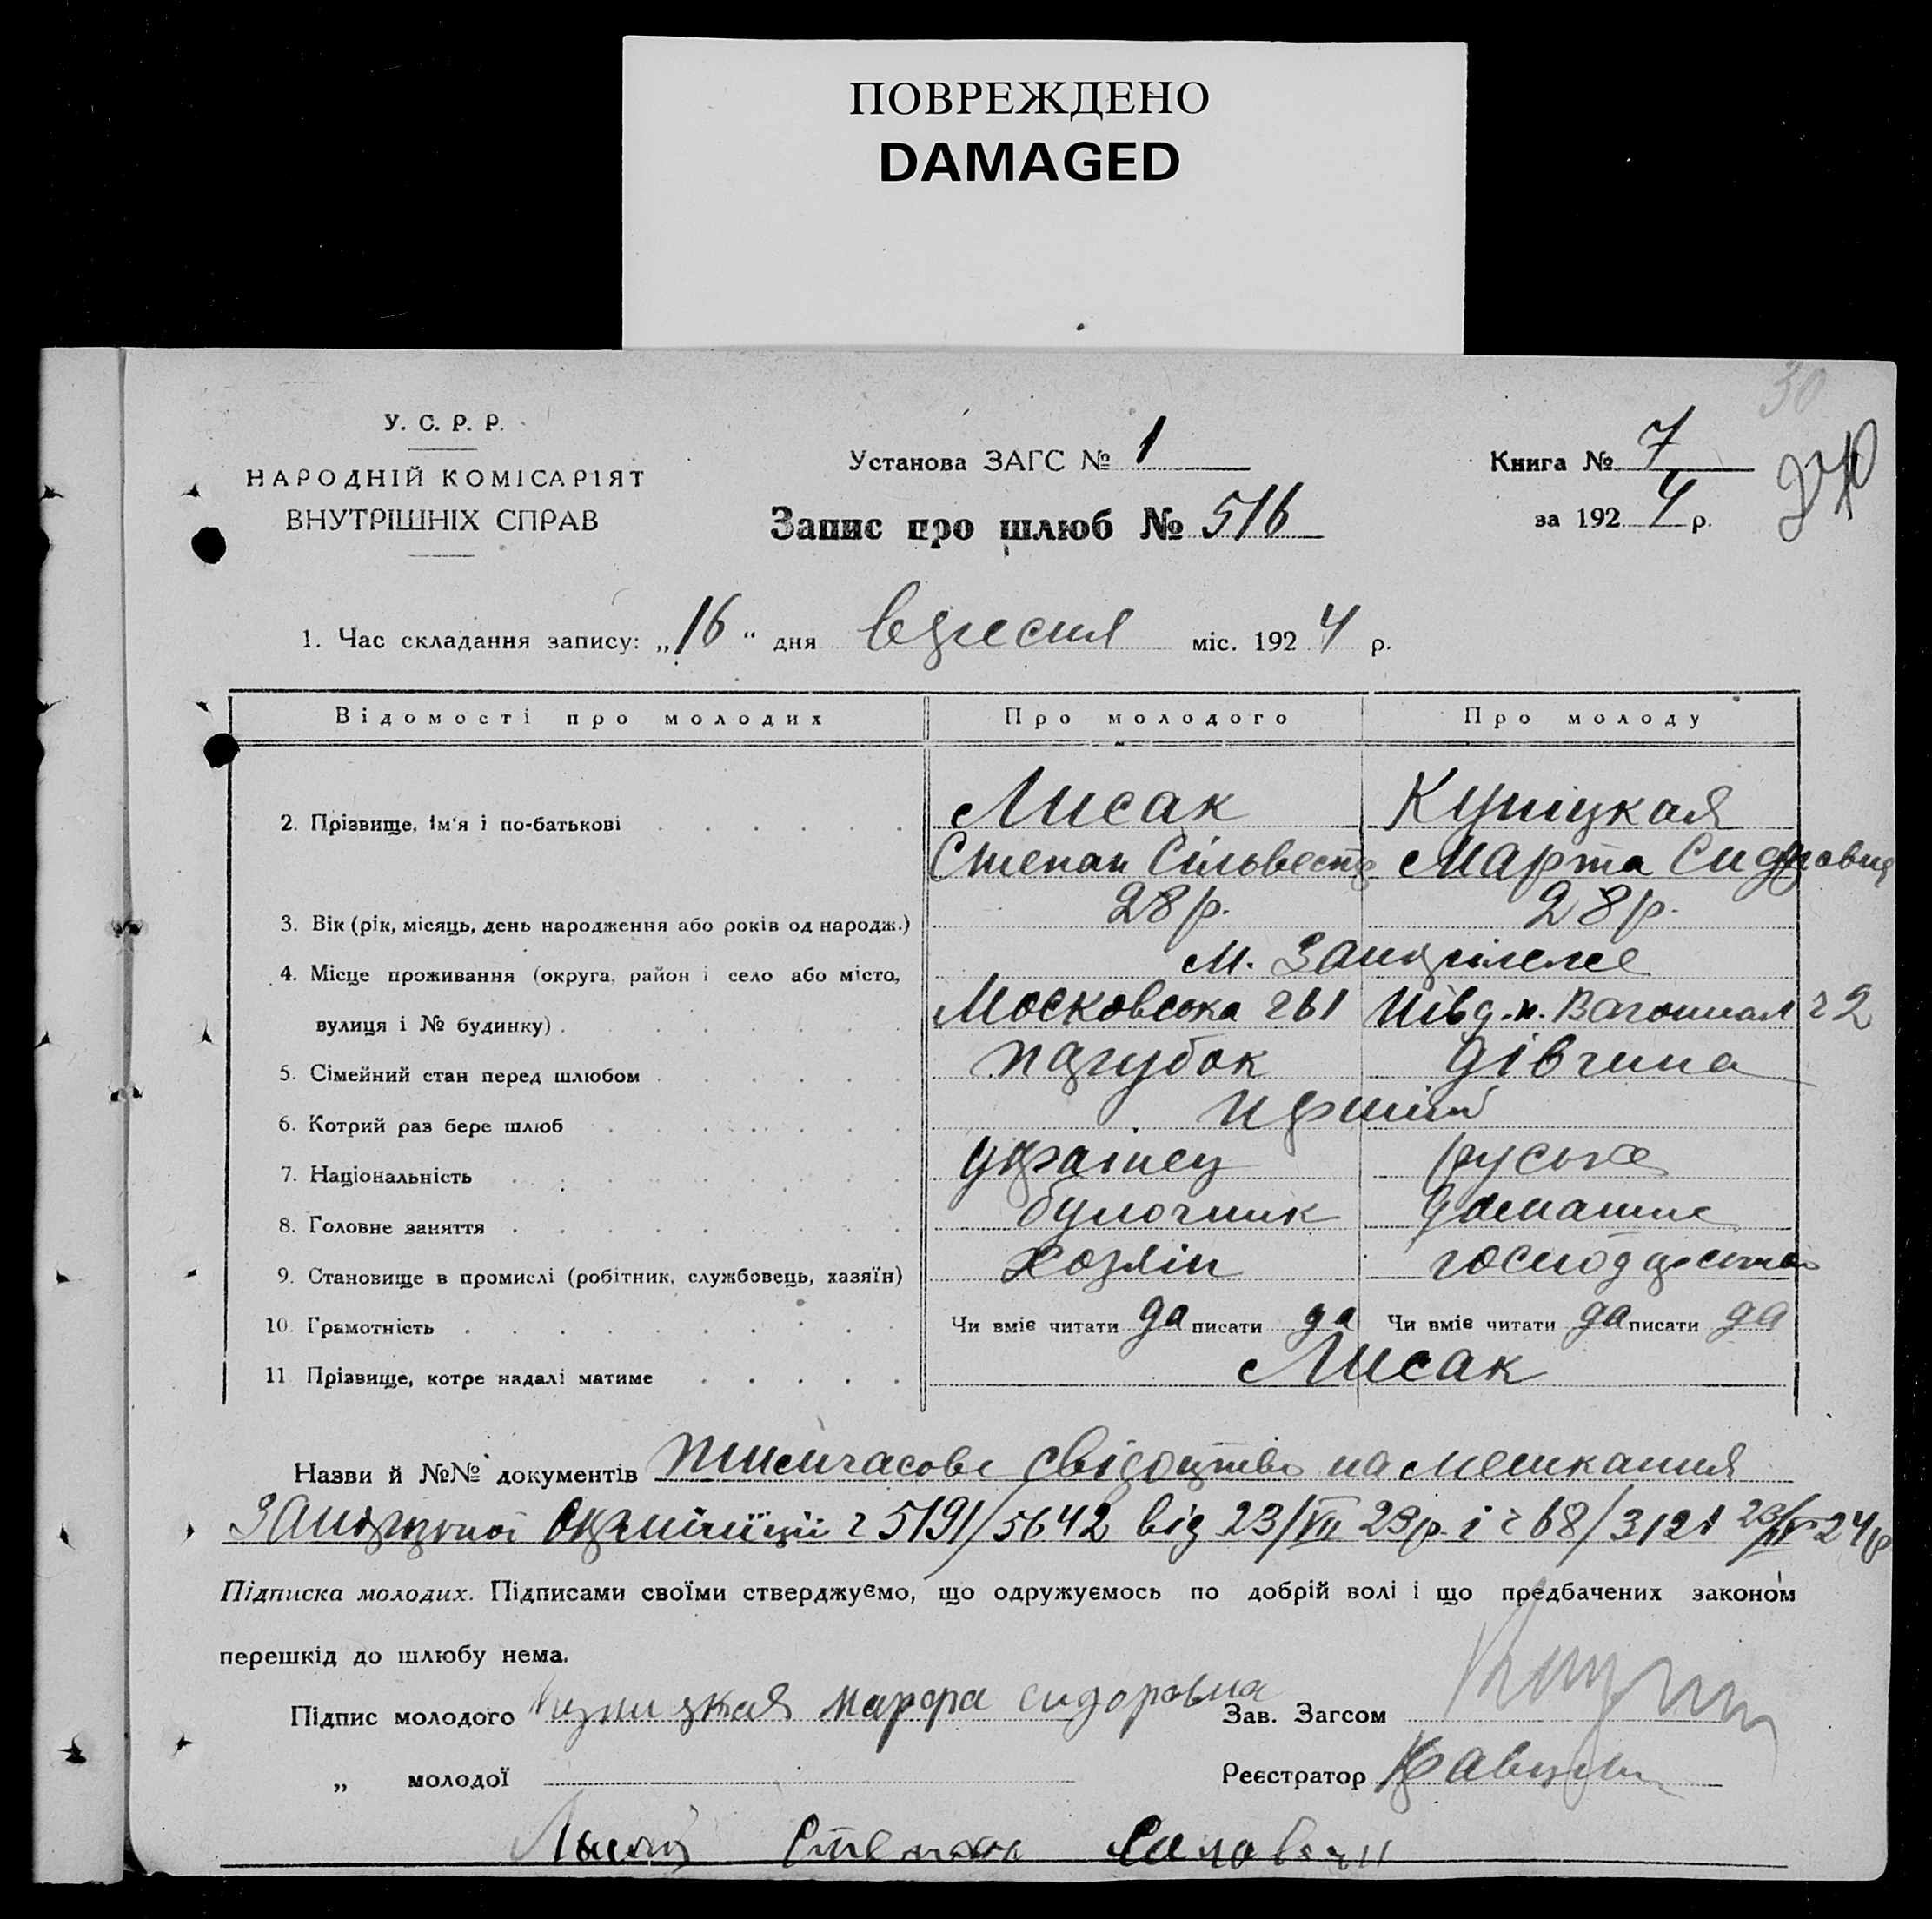 ПОВРЕЖДЕНО
DAMAGED
30
270
У. С. Р. Р.
НАРОДНІЙ КОМІСАРІЯТ
ВНУТРІШНІХ СПРАВ
Установа ЗАГС № 1
Запис про шлюб № 516
Книга № 7
за 1924 р.
1. Час складання запису: „16“ дня вересня міс. 1924 р.
Відомості про молодих Про молодого Про молоду
2. Прізвище, ім'я і по-батькові Лисак Куніцкая
Степан Сільвестр Марта Сидоровна
3. Вік (рік, місяць, день народження або років од народж.) 28 р. 28 р.
4. Місце проживання (округа, район і село або місто, м. Запоріжже
вулиця і № будинку) Московська ч 61 Півд. п. Вагонная ч 2
5. Сімейний стан перед шлюбом парубок дівчина
6. Котрий раз бере шлюб перший
7. Національність українец руська
8. Головне заняття булочник домашнє
9. Становище в промислі (робітник, службовець, хазяїн) хозяін господарство
10. Грамотність Чи вміє читати да писати да Чи вміє читати да писати да
11 Прізвище, котре надалі матиме Лисак
Назви й №№ документів тимчасове свідоцтво на мешкання
Запорізької окрміліції ч 5191/5642 від 23/VII 23 р. і ч 68/3121 24 р
Підписка молодих. Підписами своїми стверджуємо, що одружуємось по добрій волі і що предбачених законом
перешкід до шлюбу нема.
Підпис молодого Куницкая Марфа сидоровна Зав. Загсом
„ молодої Реєстратор
Степан